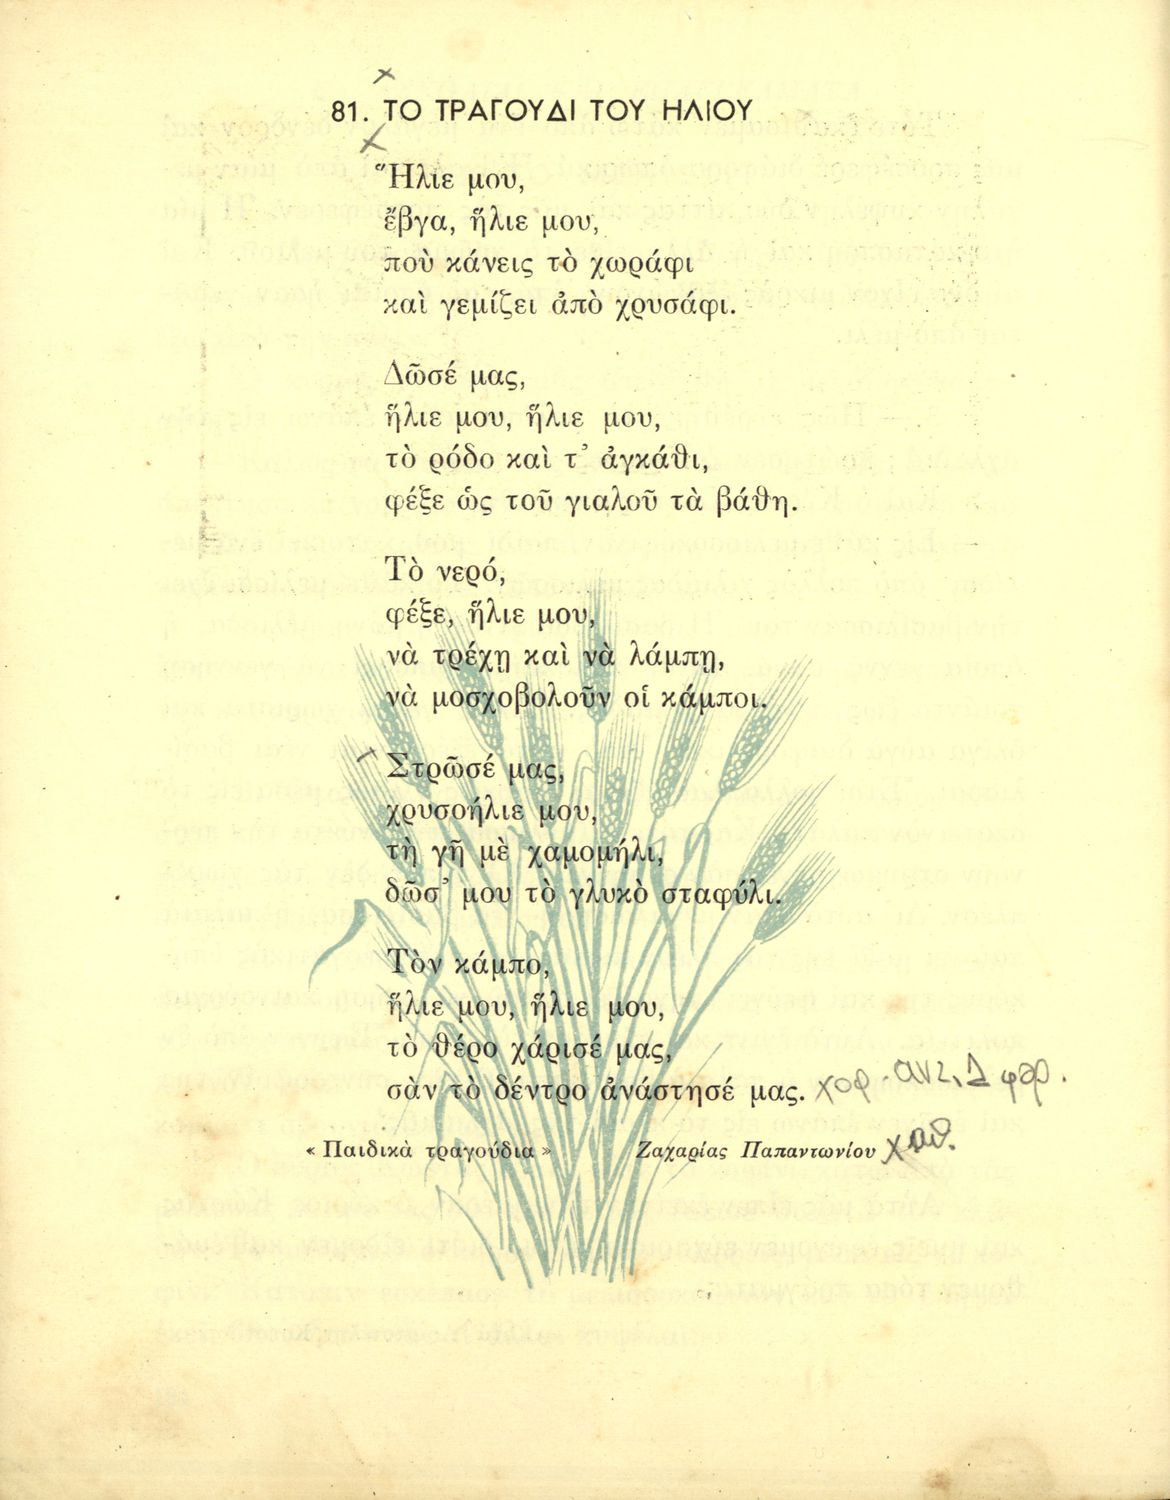 81. ΤΟ ΤΡΑΓΟΥΔΙ ΤΟΥ ΗΛΙΟΥ
Ἥλιε μου,
ἔβγα, ἥλιε μου,
ποὺ κάνεις τὸ χωράφι
καὶ γεμίζει ἀπὸ χρυσάφι.
Δῶσέ μας,
ἥλιε μου, ἥλιε μου,
τὸ ρόδο καὶ τ' ἀγκάθι,
φέξε ὡς τοῦ γιαλοῦ τὰ βάθη.
Τὸ νερό,
φέξε, ἥλιε μου,
νὰ τρέχῃ καὶ νὰ λάμπῃ,
νὰ μοσχοβολοῦν οἱ κάμποι.
Στρῶσέ μας,
χρυσοήλιε μου,
τὴ γῆ μὲ χαμομήλι,
δῶσ' μου τὸ γλυκὸ σταφύλι.
Τὸν κάμπο,
ἥλιε μου, ἥλιε μου,
τὸ θέρο χάρισέ μας,
σὰν τὸ δέντρο ἀνάστησέ μας.
« Παιδικὰ τραγούδια » Ζαχαρίας Παπαντωνίου